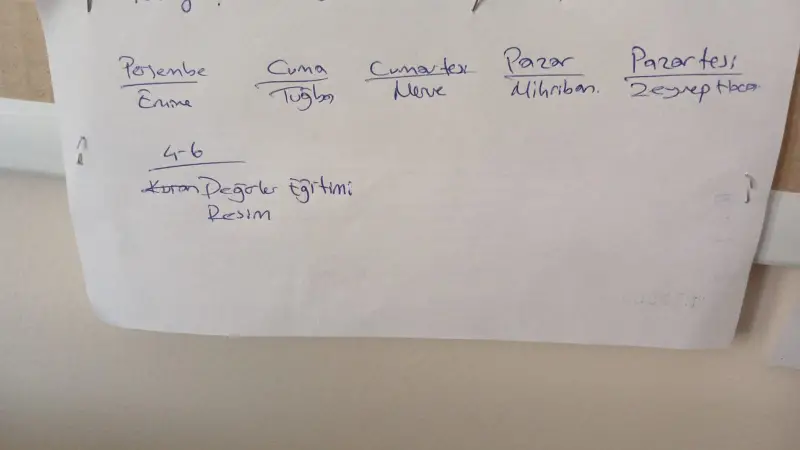 Perşembe Cuma Cumartesi Pazar Pazartesi
Emine Tuğba Merve Mihriban Zeynep
4-6
Kuran Değerler Eğitimi
Resim